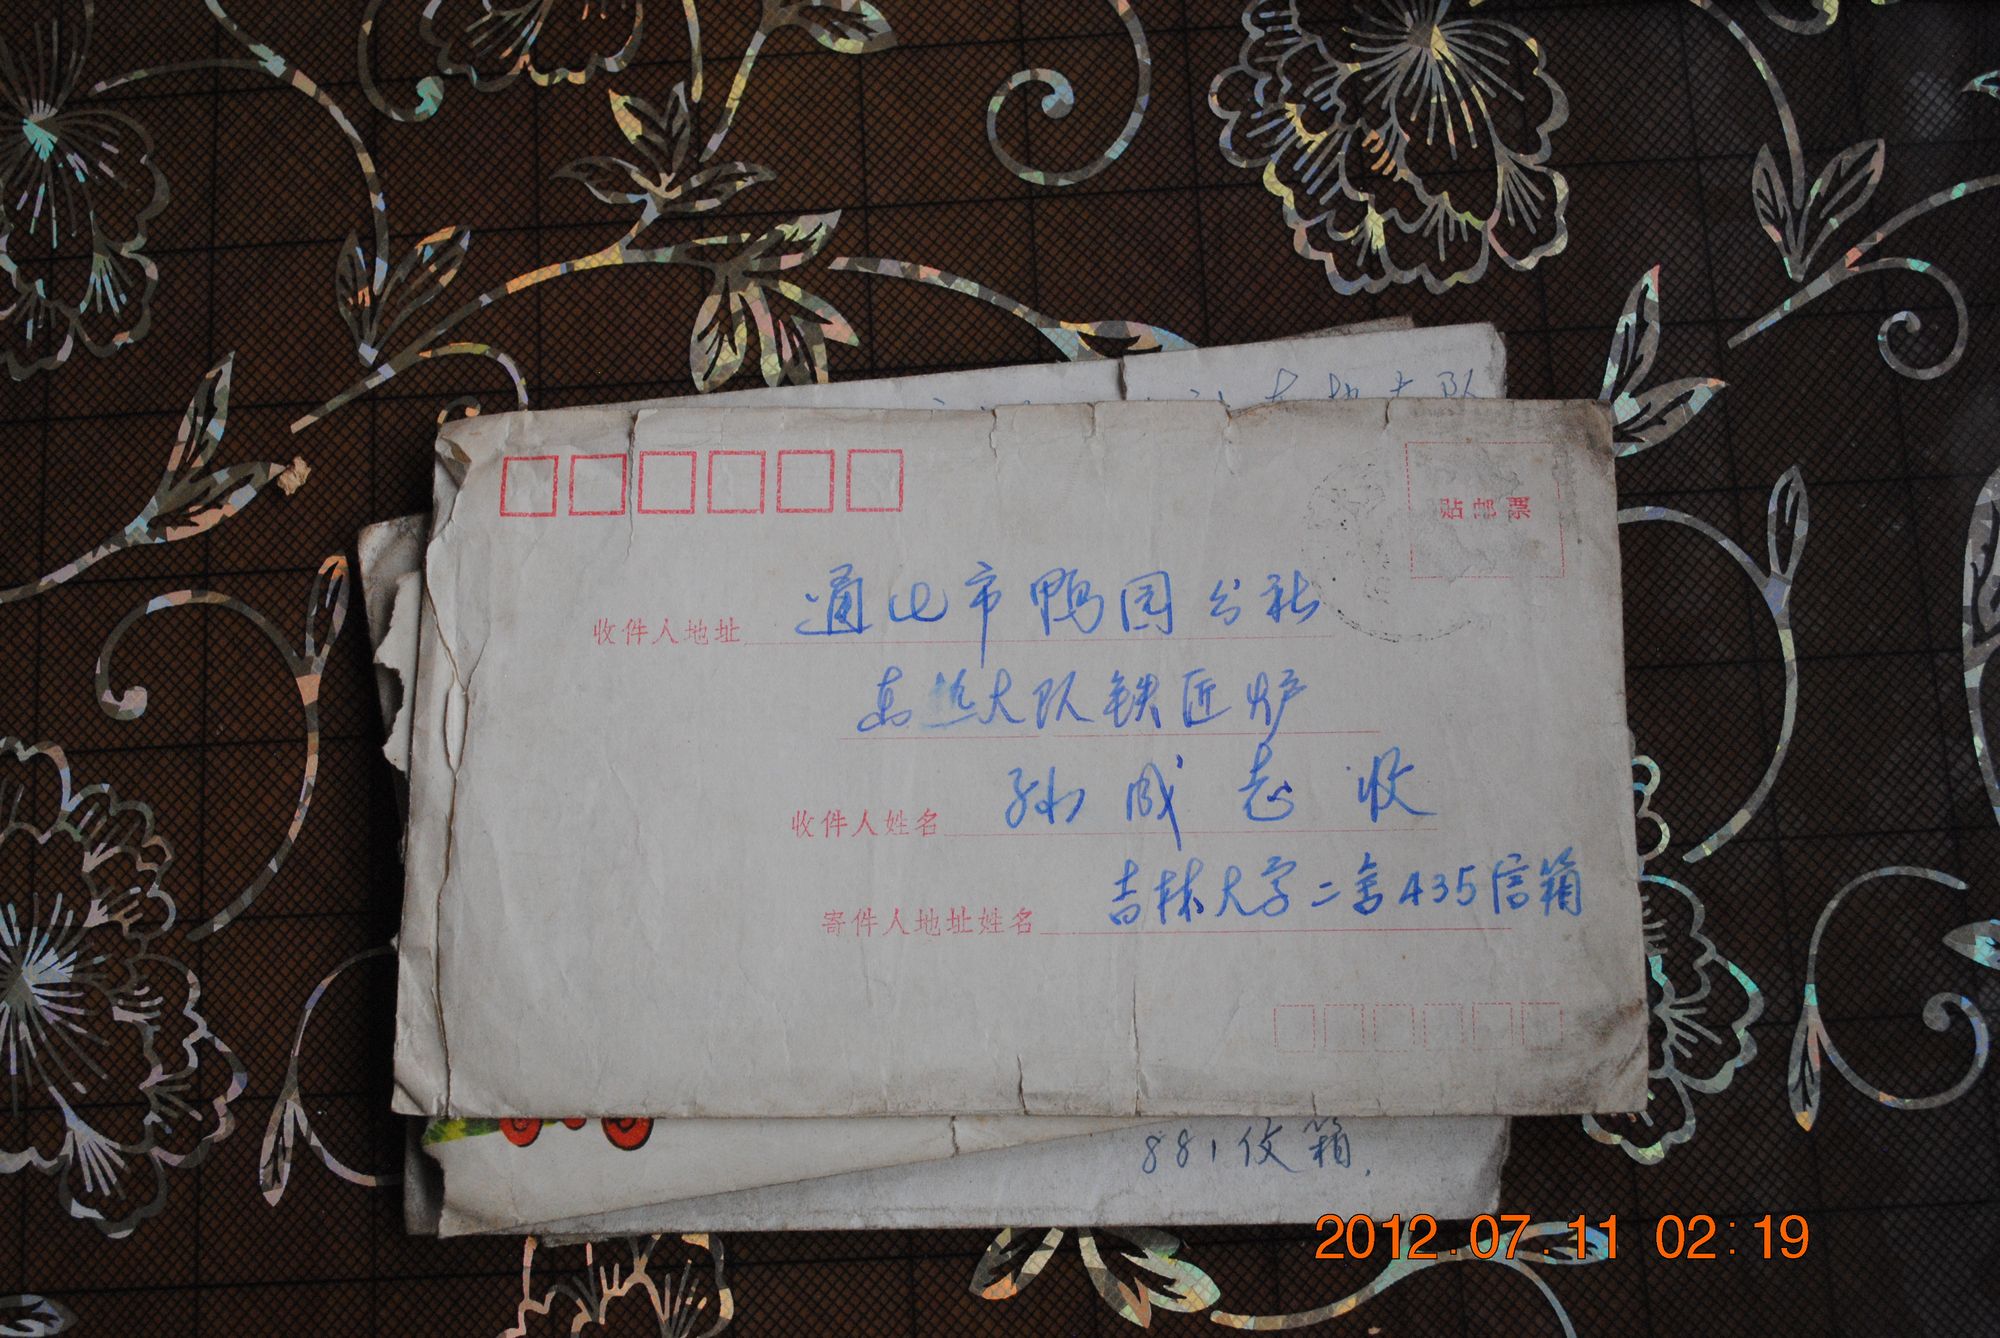 东热大队
贴邮票
收件人地址 通化市鸭园公社
东热大队铁匠炉
收件人姓名 孙成志收
寄件人地址姓名 吉林大学二舍435信箱
881信箱.
2012.07.11 02:19